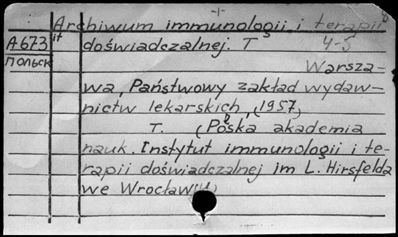 Archiwum immunologii i terapii
A673
it
doświadczalnej. T 4-5
польск
Warsza-
wa, Państwowy zakład wydaw-
nictw lekarskich, (1957)
T. (Polska akademia
nauk. Instytut immunologii i te-
rapii doświadczalnej im L. Hirsfelda
we Wrocławiu)